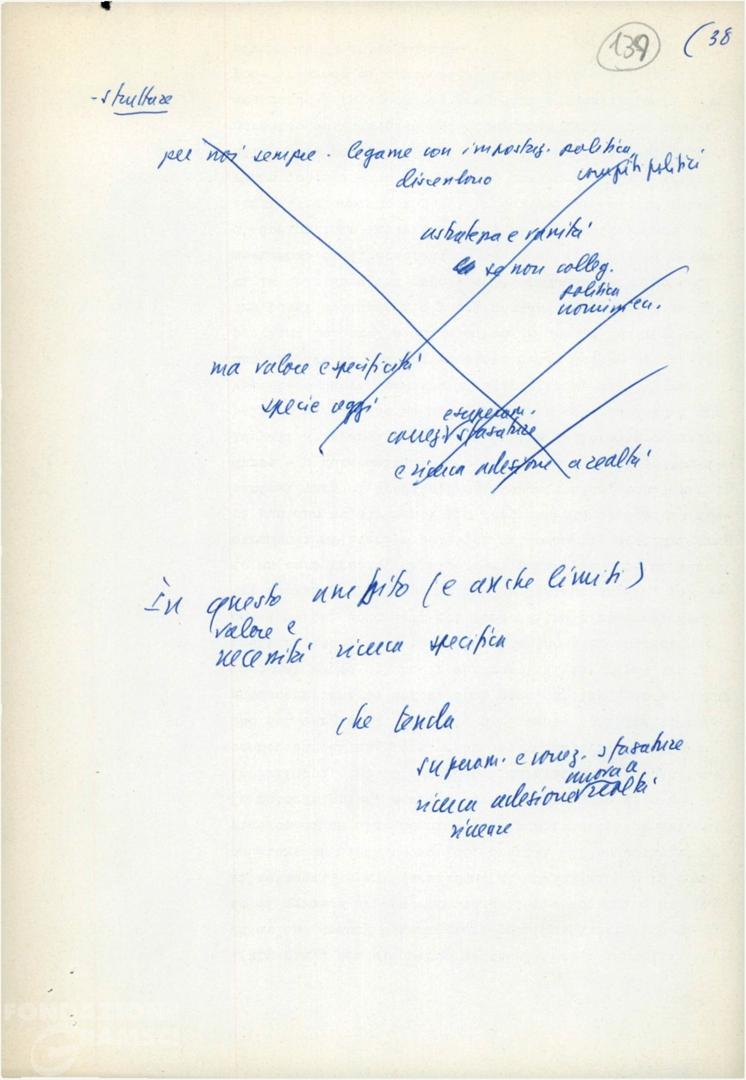 139
(38
- strutture
per noi sempre. legame con impostaz. politica
discendono compiti politici
astrattezza e vanità
se non colleg.
politica
ma valore e specificità
specie oggi
e superam.
correz. sfasature
e ricerca adesione a realtà
In questo ambito (e anche limiti)
valore e
necessità ricerca specifica
che tenda
superam. e correz. sfasature
nuova a
ricerca adesione realtà
ricerare
FONDAZIONE
GRAMSCI